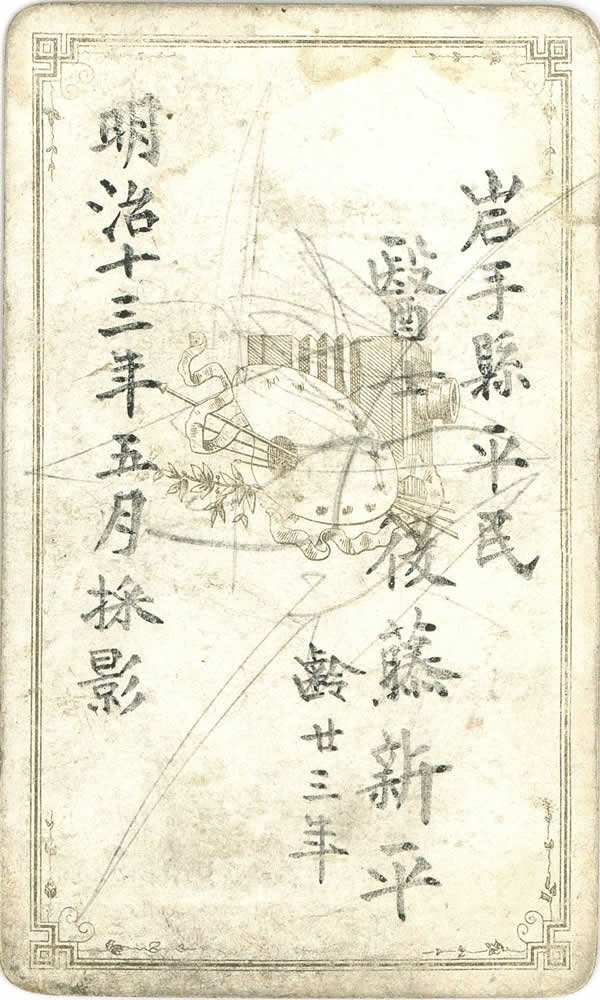 岩手縣平民
醫士後藤新平
齡廿三年
明治十三年五月採影